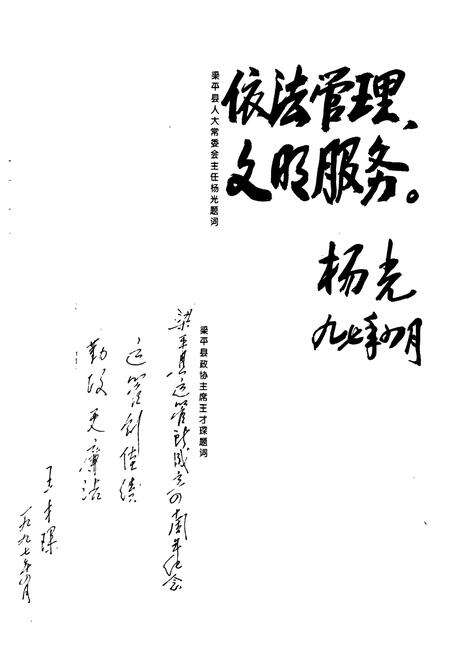 梁平县人大常委会主任杨光题词
依法管理、
文明服务。
杨光
九七年四月
梁平县政协主席王才琛题词
梁平县运管所成立四十周年纪念
运管创佳绩
勤政更廉洁
王才琛
一九九七年四月